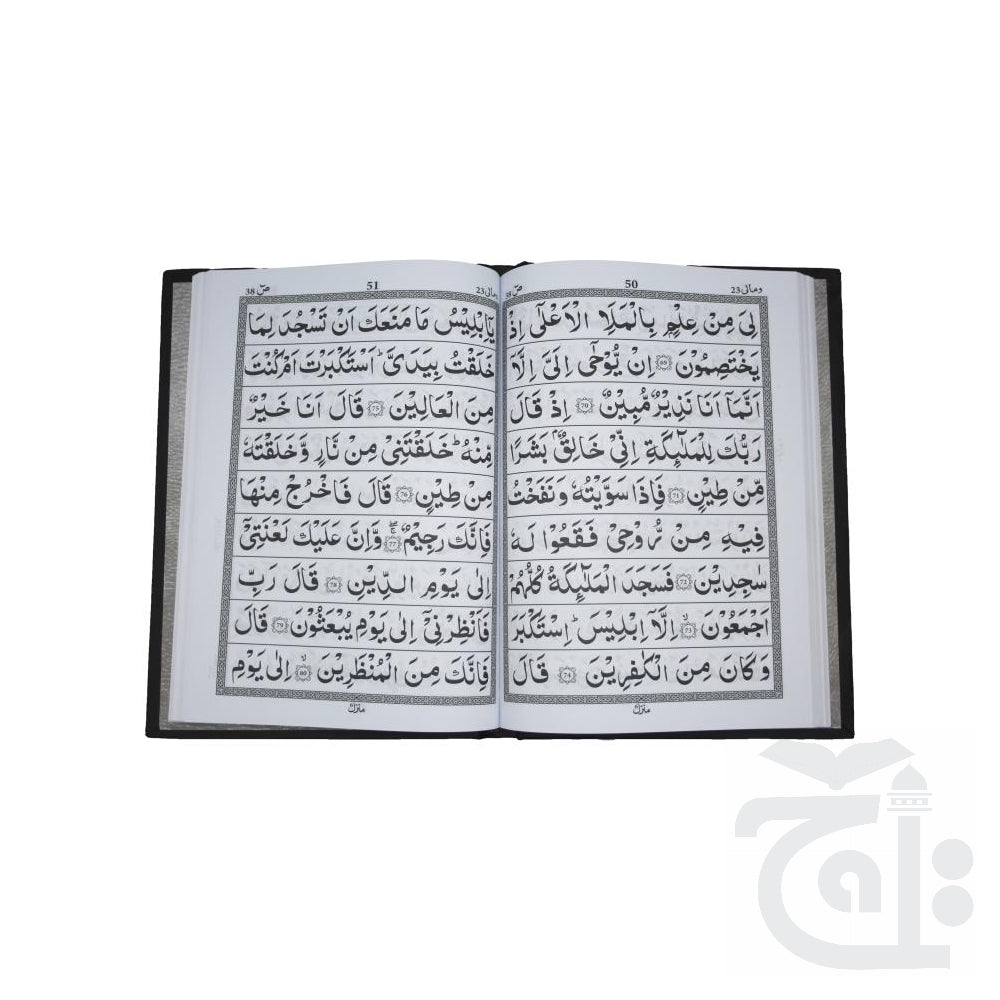 ومالی 23
50
صٓ 38
لِیَ مِنْ عِلْمٍۭ بِالْمَلَاِ الْاَعْلٰٓی اِذْ
یَخْتَصِمُوْنَ 69 اِنْ یُّوْحٰۤی اِلَیَّ اِلَّاۤ
اَنَّمَاۤ اَنَا نَذِیْرٌ مُّبِیْنٌ 70 اِذْ قَالَ
رَبُّكَ لِلْمَلٰٓىِٕكَةِ اِنِّیْ خَالِقٌۢ بَشَرًا
مِّنْ طِیْنٍ 71 فَاِذَا سَوَّیْتُهٗ وَنَفَخْتُ
فِیْهِ مِنْ رُّوْحِیْ فَقَعُوْا لَهٗ
سٰجِدِیْنَ 72 فَسَجَدَ الْمَلٰٓىِٕكَةُ كُلُّهُمْ
اَجْمَعُوْنَ 73 اِلَّاۤ اِبْلِیْسَ ؕ اِسْتَكْبَرَ
وَكَانَ مِنَ الْكٰفِرِیْنَ 74 قَالَ
منزل
ومالی 23
51
صٓ 38
یٰۤاِبْلِیْسُ مَا مَنَعَكَ اَنْ تَسْجُدَ لِمَا
خَلَقْتُ بِیَدَیَّ ؕ اَسْتَكْبَرْتَ اَمْ كُنْتَ
مِنَ الْعَالِیْنَ 75 قَالَ اَنَا خَیْرٌ
مِّنْهُ ؕ خَلَقْتَنِیْ مِنْ نَّارٍ وَّخَلَقْتَهٗ
مِنْ طِیْنٍ 76 قَالَ فَاخْرُجْ مِنْهَا
فَاِنَّكَ رَجِیْمٌ 77 وَّاِنَّ عَلَیْكَ لَعْنَتِیْۤ
اِلٰی یَوْمِ الدِّیْنِ 78 قَالَ رَبِّ
فَاَنْظِرْنِیْۤ اِلٰی یَوْمِ یُبْعَثُوْنَ 79 قَالَ
فَاِنَّكَ مِنَ الْمُنْظَرِیْنَ 80 اِلٰی یَوْمِ
منزل